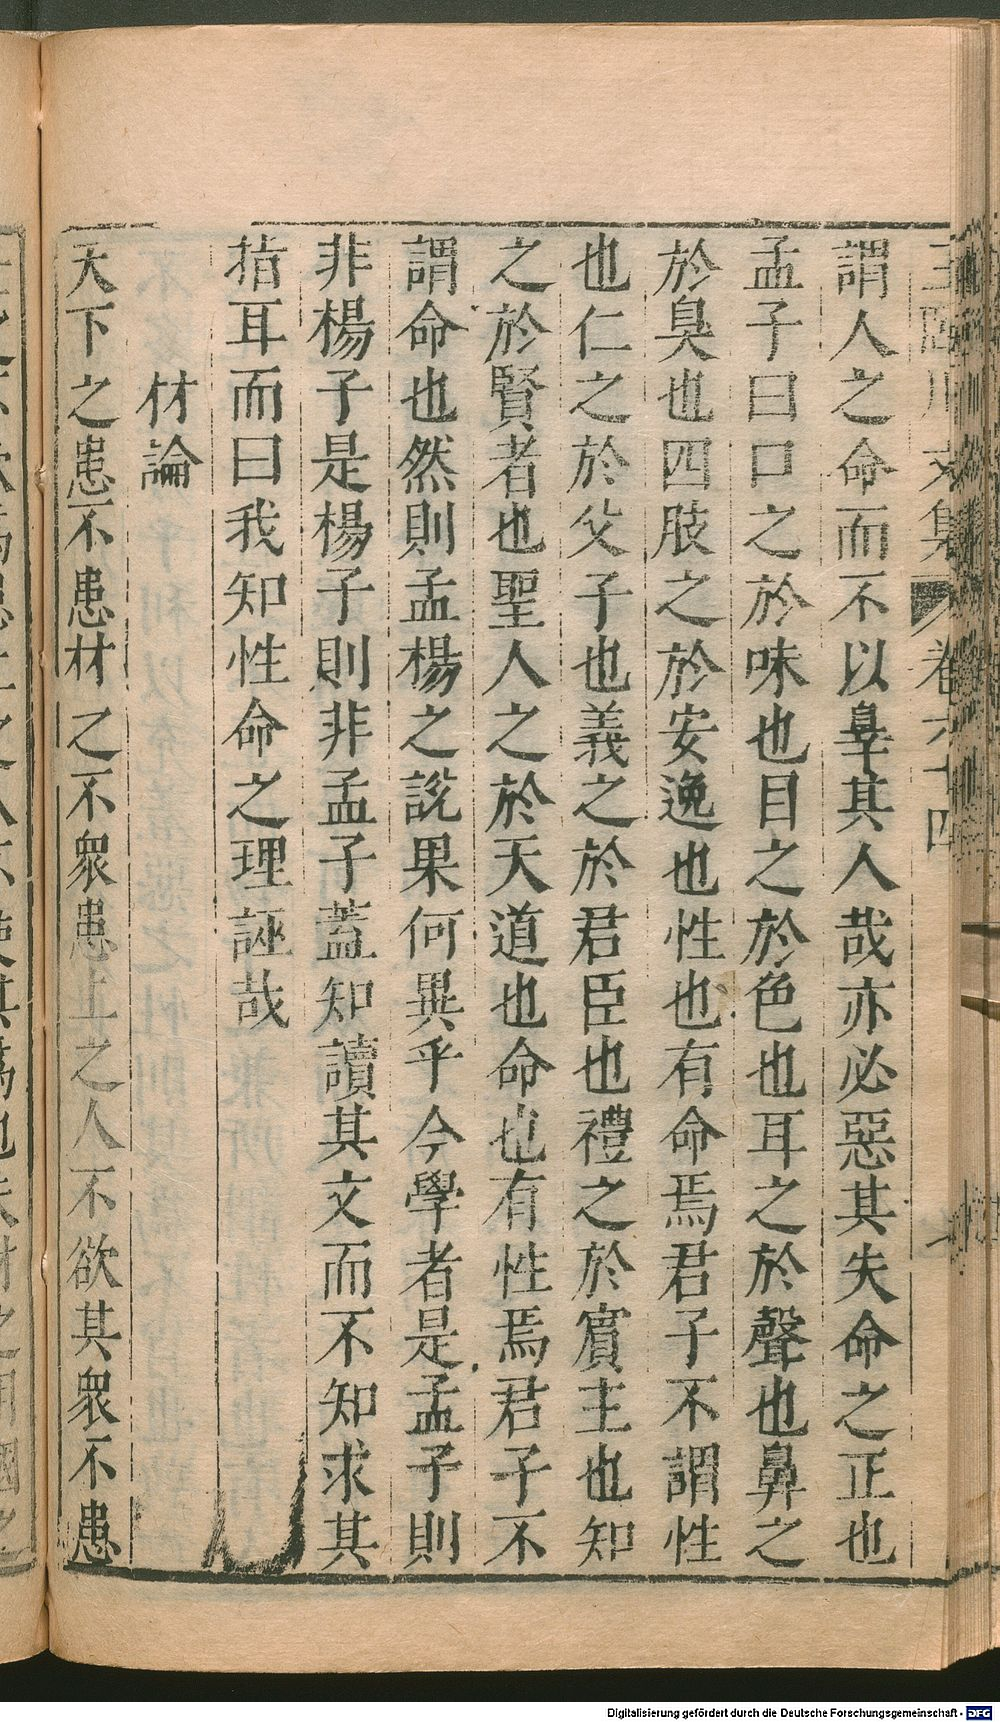 王臨川文集 卷六十四
謂人之命而不以辠其人哉亦必惡其失命之正也
孟子曰口之於味也目之於色也耳之於聲也鼻之
於臭也四肢之於安逸也性也有命焉君子不謂性
也仁之於父子也義之於君臣也禮之於賓主也知
之於賢者也聖人之於天道也命也有性焉君子不
謂命也然則孟楊之說果何異乎今學者是孟子則
非楊子是楊子則非孟子蓋知讀其文而不知求其
指耳而曰我知性命之理誣哉
材論
天下之患不患材之不衆患上之人不欲其衆不患
Digitalisierung gefördert durch die Deutsche Forschungsgemeinschaft - DFG